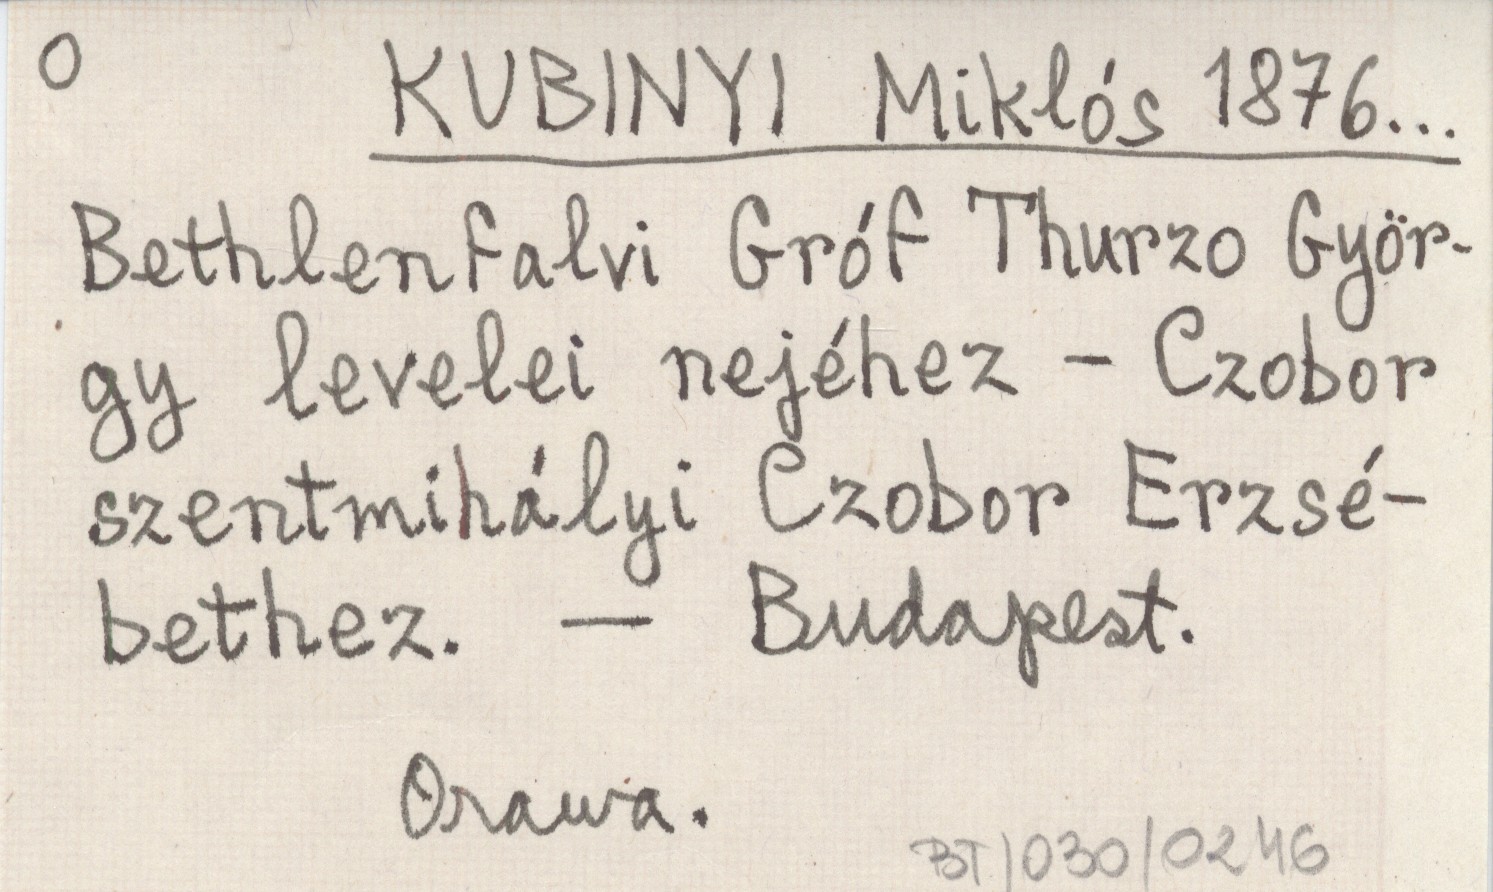 O
KUBINYI Miklós 1876...
Bethlenfalvi Gróf Thurzo Györ-
gy levelei nejéhez - Czobor
szentmihályi Czobor Erzsé-
bethez. — Budapest.
Orawa.
BT/030/0246